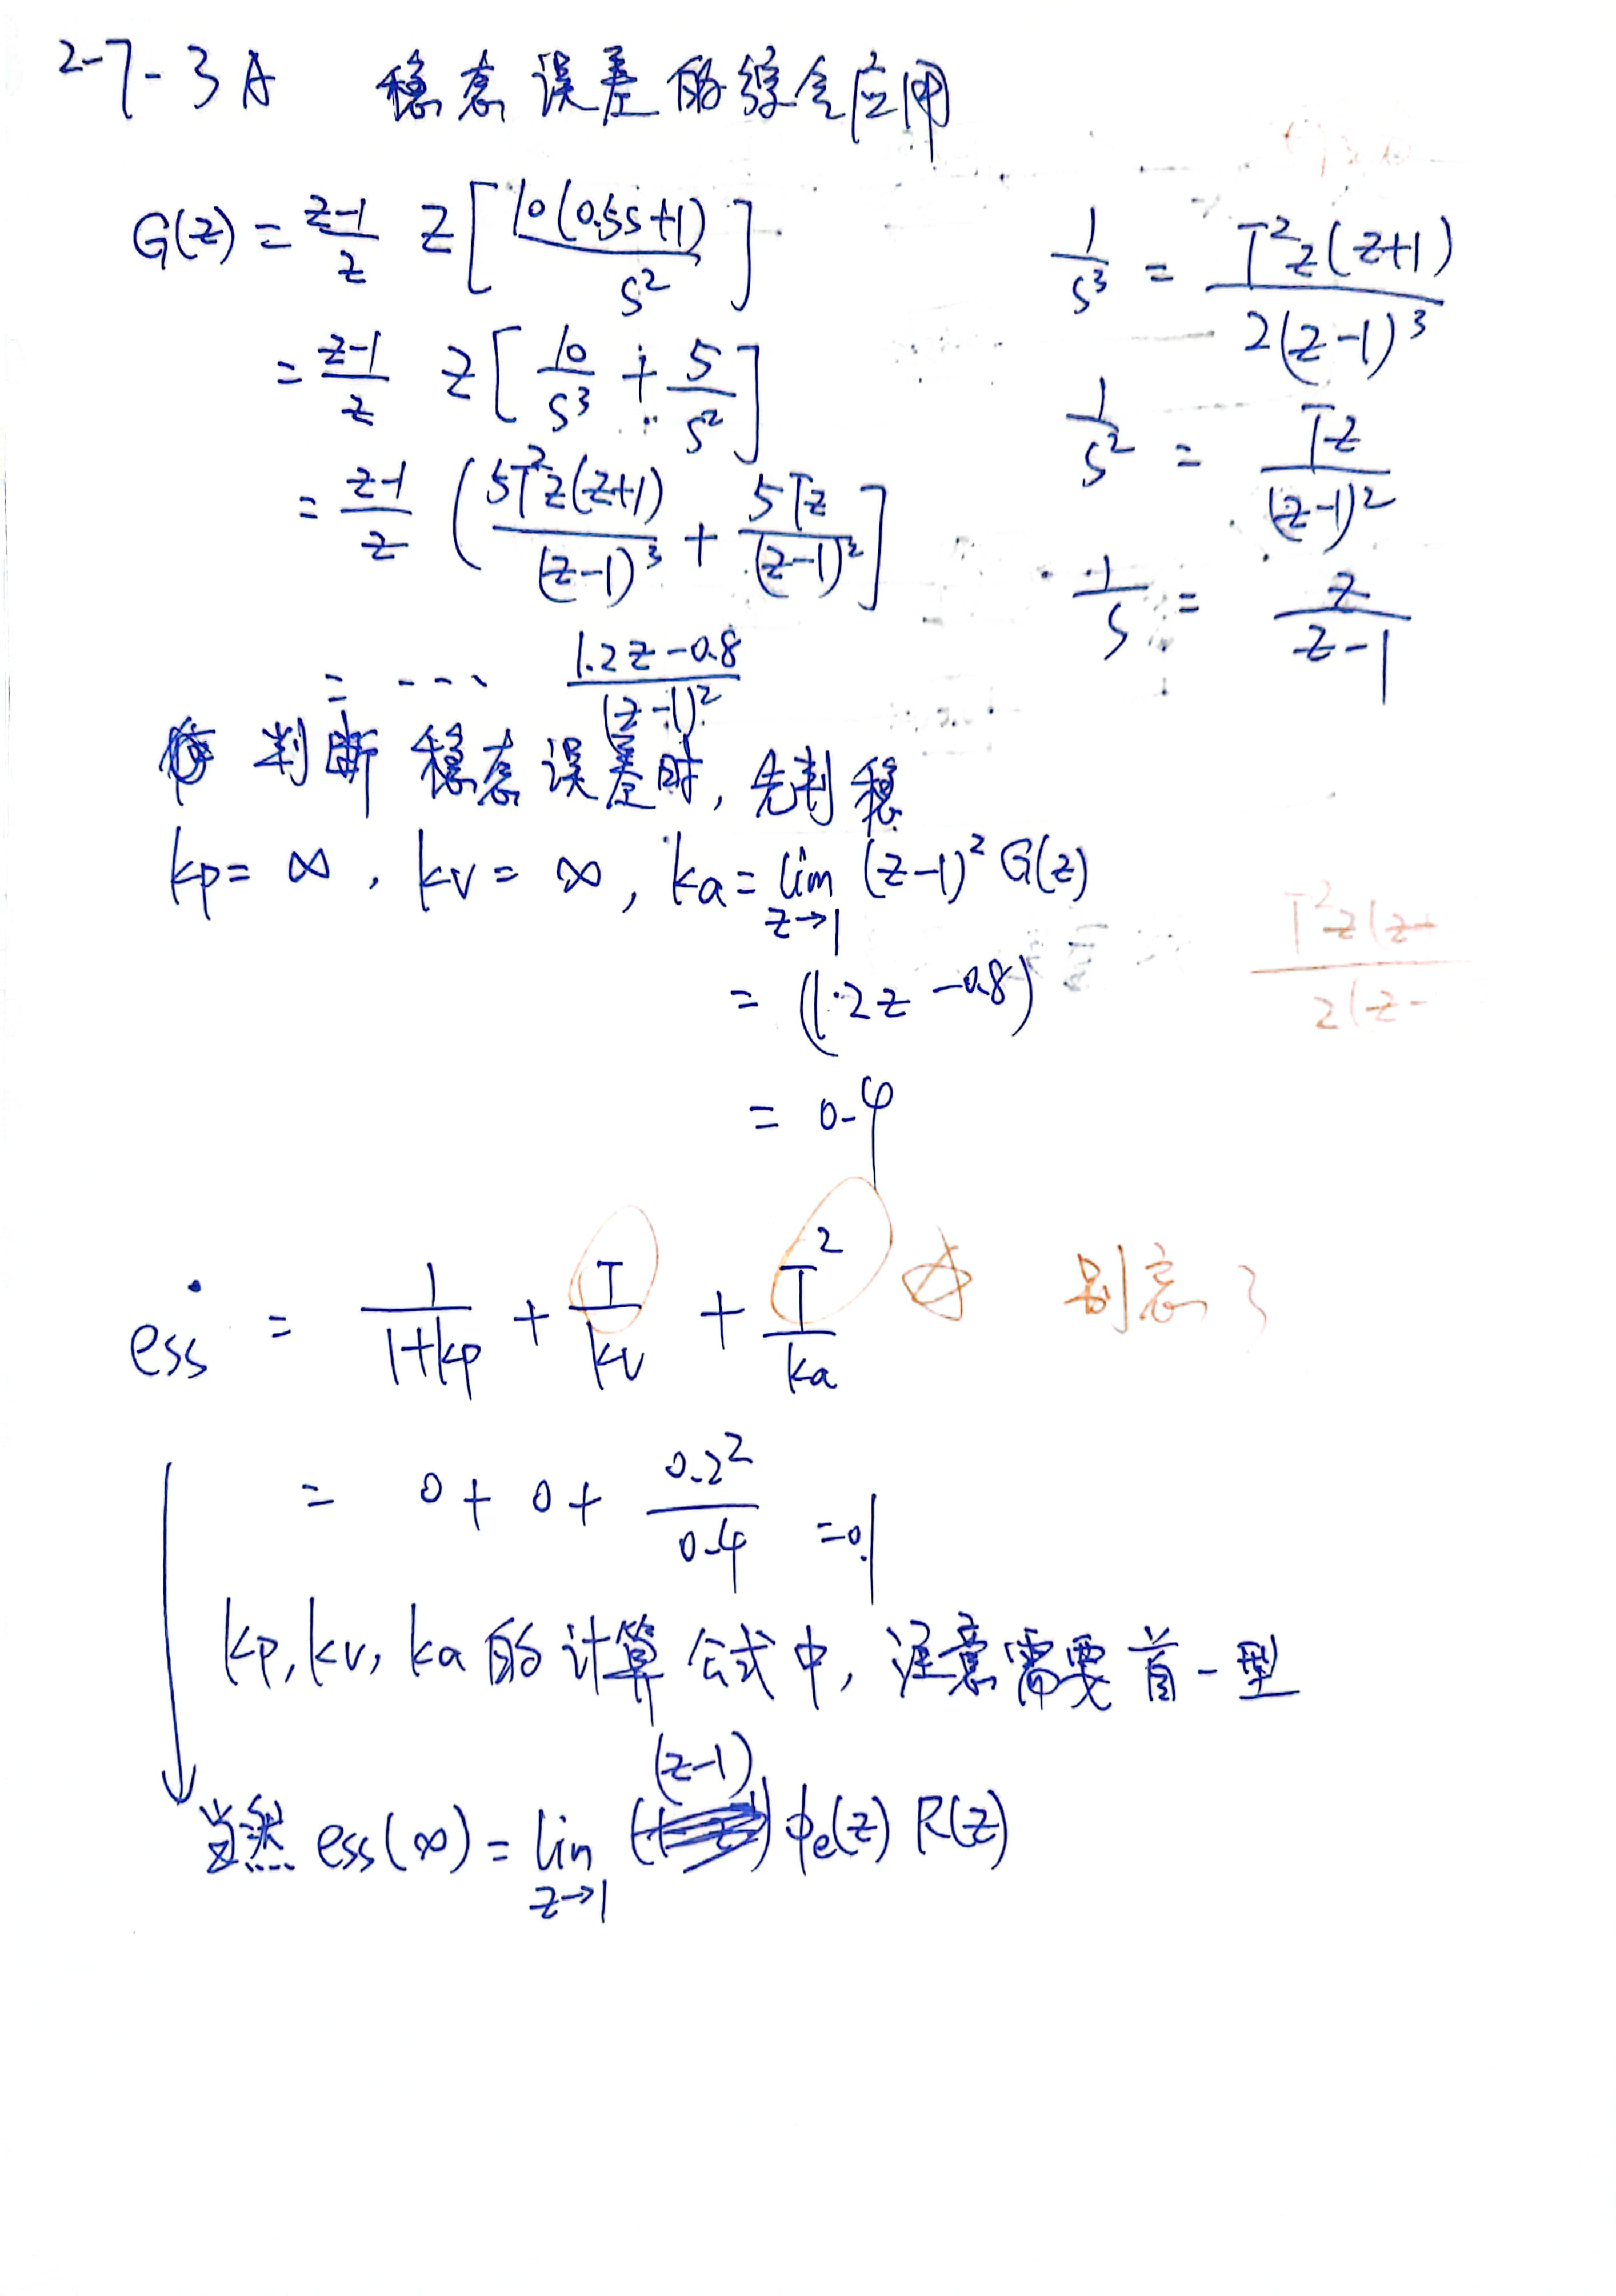 2-7-3A 稳态误差的综合应用
G(z) = \frac{z-1}{z} Z[\frac{10(0.5s+1)}{s^2}]
= \frac{z-1}{z} Z[\frac{10}{s^3} + \frac{5}{s^2}]
= \frac{z-1}{z} (\frac{5T^2z(z+1)}{(z-1)^3} + \frac{5Tz}{(z-1)^2}]
= ---- \frac{1.2z-0.8}{(z-1)^2}
\frac{1}{s^3} = \frac{T^2z(z+1)}{2(z-1)^3}
\frac{1}{s^2} = \frac{Tz}{(z-1)^2}
\frac{1}{s} = \frac{z}{z-1}
判断稳态误差时, 先判稳
kp = ∞, kv = ∞, ka = \lim_{z→1} (z-1)^2 G(z)
= (1.2z-0.8)
= 0.4
\frac{T^2z(z+}{2(z-}
ess = \frac{1}{1+kp} + \frac{T}{kv} + \frac{T^2}{ka} ☆ 别忘了
= 0+0+\frac{0.2^2}{0.4} = 0.1
kp, kv, ka的计算公式中, 注意需要首一型
当然 ess(∞) = \lim_{z→1} (z-1) φe(z) R(z)